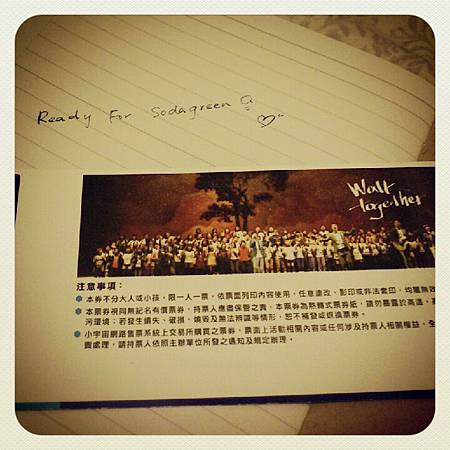 Ready For Sodagreen
Walk
together
注意事項：
本券不分大人或小孩，限一人一票，依票面列印內容使用，任意塗改、影印或非法套印，均屬無效
本票券視同無記名有價票券，持票人應盡保管之責，本票券為熱轉式票券紙，請勿暴露於高溫、
污環境；若發生遺失、破損、燒毀及無法辨識等情形，恕不補發或退換票券。
小宇宙網路售票系統上交易所購買之票券，票面上活動相關內容或任何涉及持票人相關權益，全
責處理，請持票人依照主辦單位所發之通知及規定辦理。